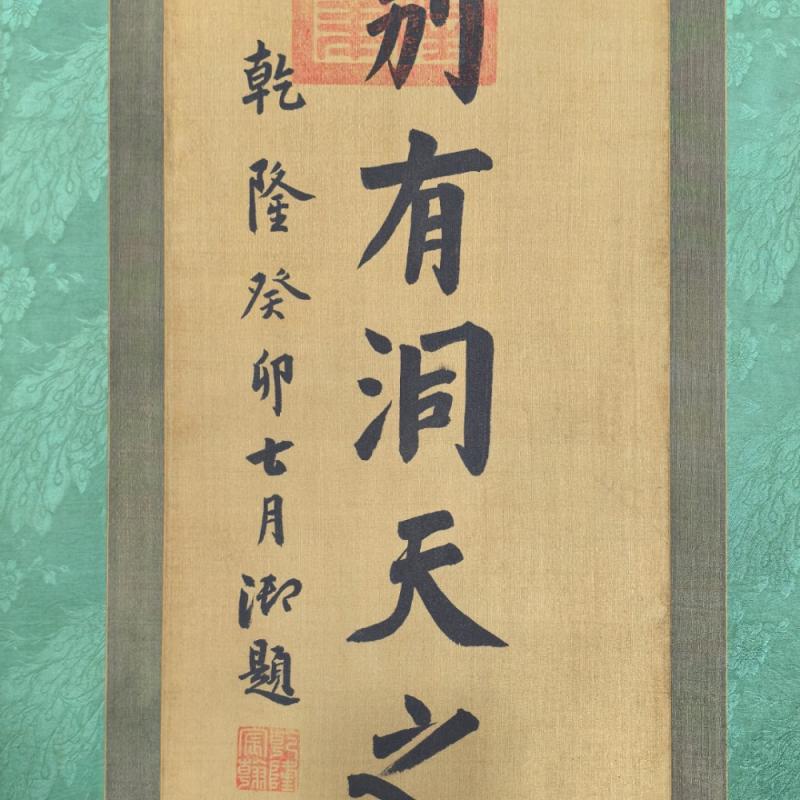 別有洞天之
乾隆癸卯七月御題
乾隆宸翰